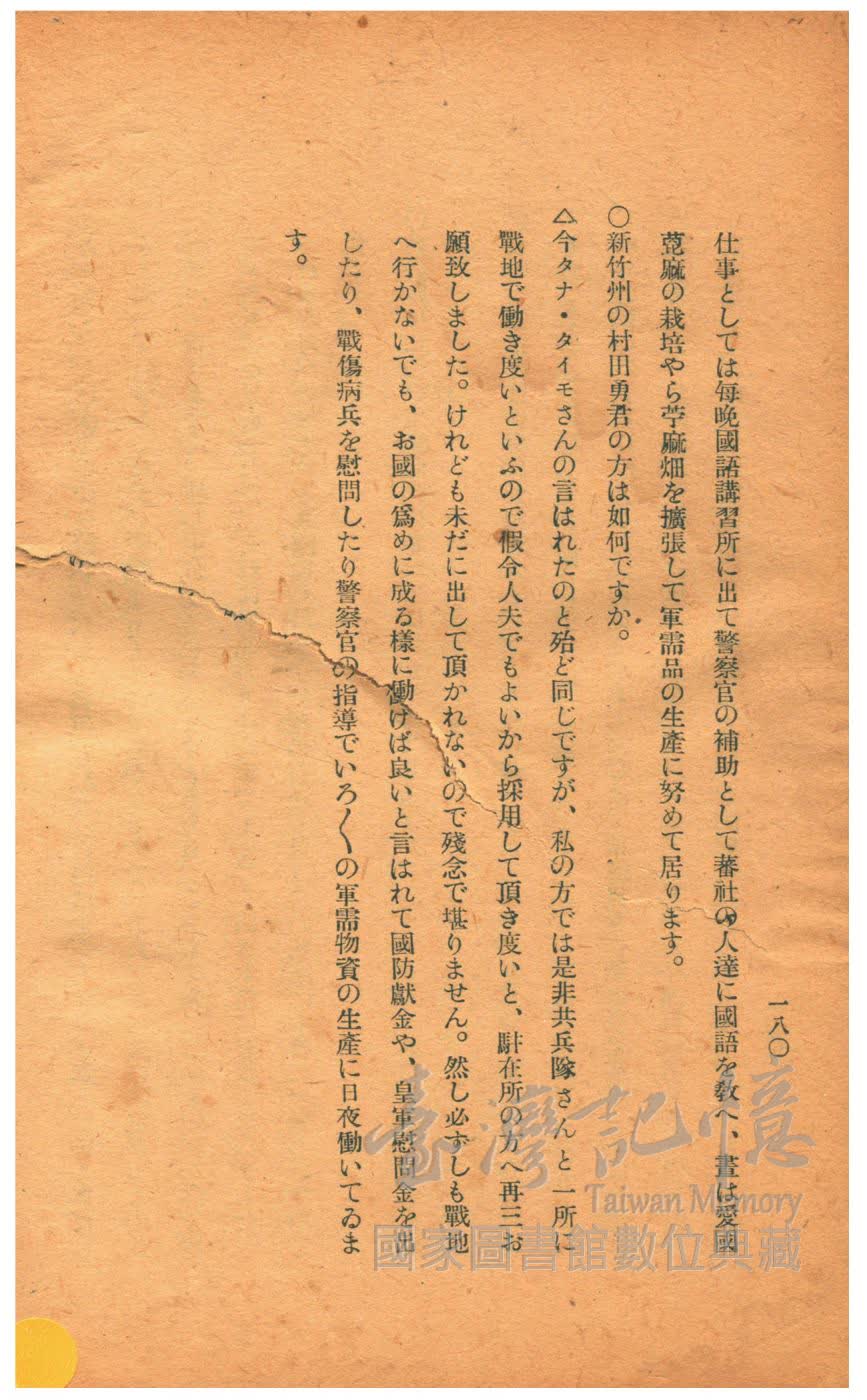 一八〇
仕事としては每晚國語講習所に出て警察官の補助として蕃社の人達に國語を敎へ、晝は愛國
萞麻の栽培やら苧麻畑を擴張して軍需品の生產に努めて居ります。
○新竹州の村田勇君の方は如何ですか。
△今タナ・タイモさんの言はれたのと殆ど同じですが、私の方では是非共兵隊さんと一所に
戰地で働き度いといふので假令人夫でもよいから採用して頂き度いと、駐在所の方へ再三お
願致しました。けれども未だに出して頂かれないので殘念で堪りません。然し必ずしも戰地
へ行かないでも、お國の爲めに成る樣に働けば良いと言はれて國防獻金や、皇軍慰問金を出
したり、戰傷病兵を慰問したり警察官の指導でいろ〱の軍需物資の生產に日夜働いてゐま
す。
臺灣記憶
Taiwan Memory
國家圖書館數位典藏